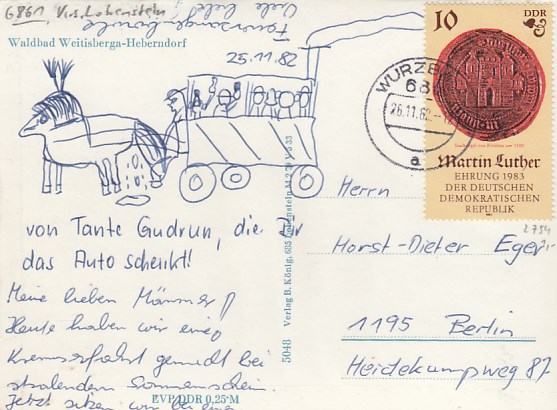 6861 V.s. Lobenstein
Viele liebe
Waldbad Weitisberga-Heberndorf
25.11.82
10 DDR
WURZB
68
26.11.82
a
Martin Luther
EHRUNG 1983
DER DEUTSCHEN
DEMOKRATISCHEN
REPUBLIK
von Tante Gudrun, die Dir
das Auto schenkt!
Meine lieben Männer!
Heute haben wir eine
Kremserfahrt gemacht bei
strahlendem Sonnenschein.
Jetzt sitzen wir bei
EVP DDR 0,25 M
5048 Verlag B. König, 685 Lobenstein
Herrn
Horst-Dieter Eger
1195 Berlin
Heidekampweg 87